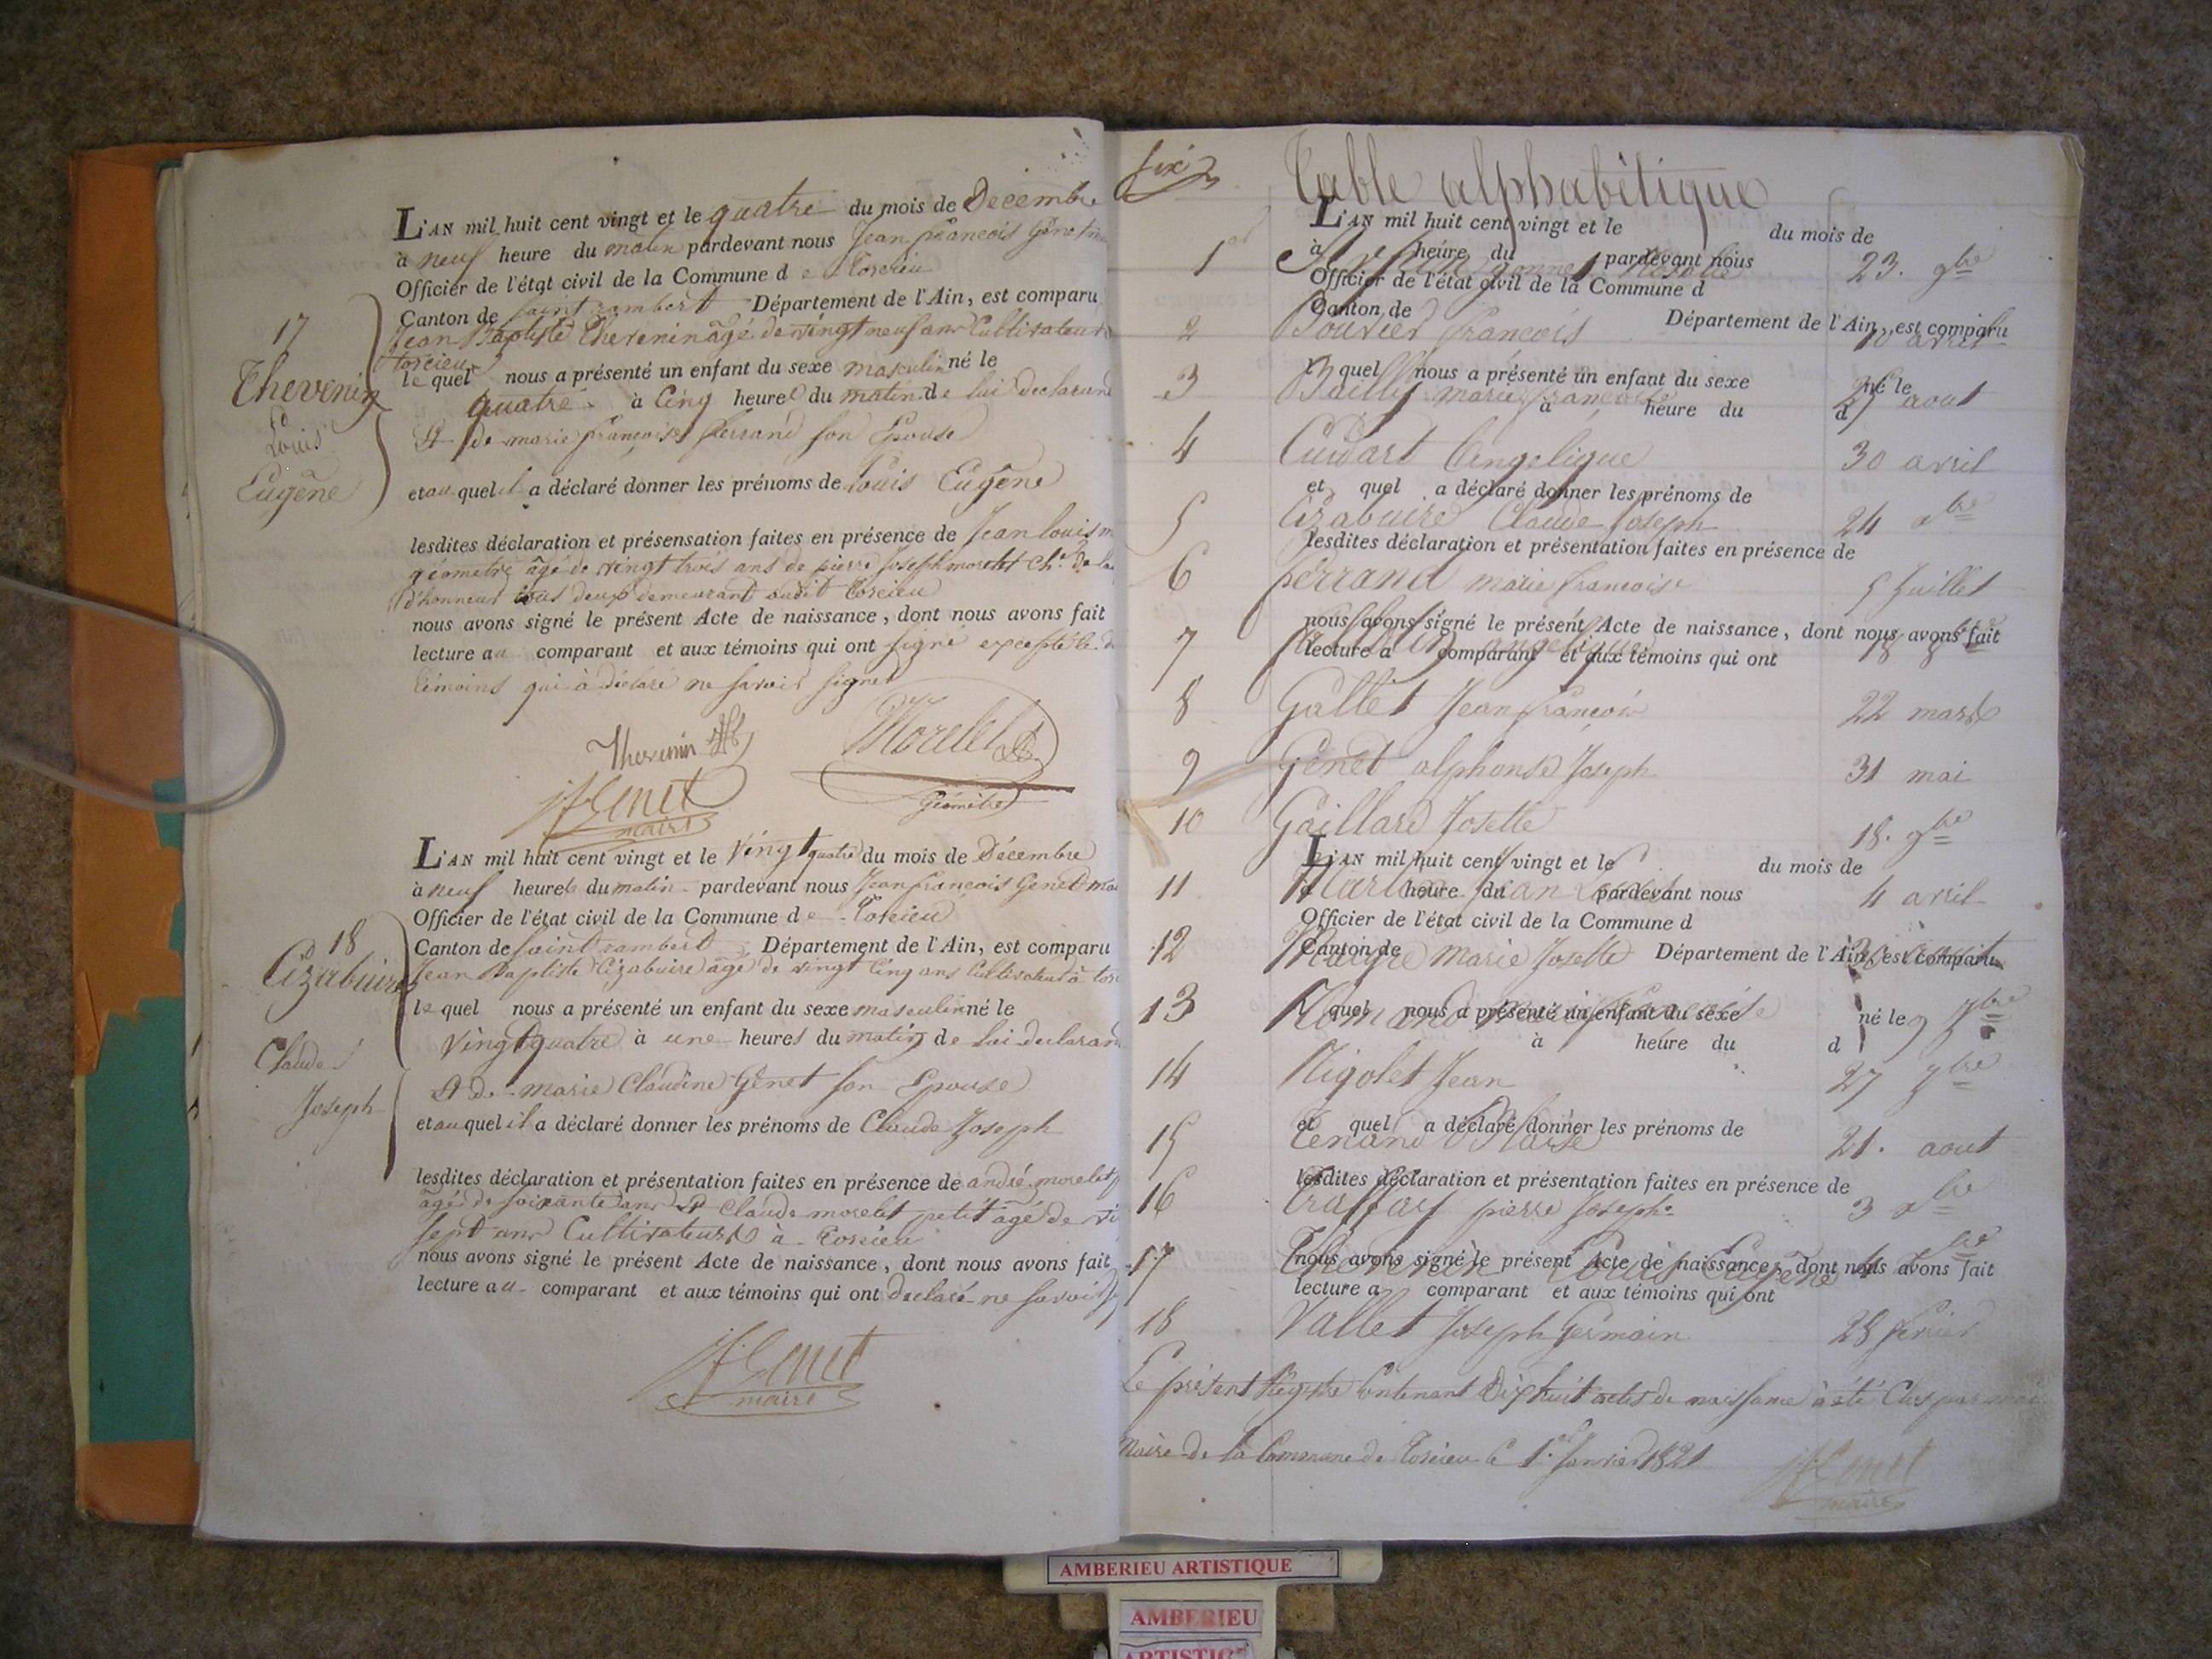 L'AN mil huit cent vingt et le quatre du mois de Décembre
à neuf heure du matin pardevant nous Jean françois Genet
Officier de l'état civil de la Commune de Torcieu
Canton de saint rambert Département de l'Ain, est comparu
Jean Baptiste Thevenin âgé de vingt neuf ans Cultivateur
torcieu
le quel nous a présenté un enfant du sexe masculin né le
quatre à Cinq heure du matin de lui declarant
Et de marie françoise ferrand son Epouse
et au quel il a déclaré donner les prénoms de Louis Eugène
lesdites déclaration et présensation faites en présence de Jean louis
géometre âgé de vingt trois ans de pierre Joseph morelet
d'honneur tous deux demeurant audit torcieu
nous avons signé le présent Acte de naissance, dont nous avons fait
lecture au comparant et aux témoins qui ont signé excepté le
témoins qui à déclaré ne savoir signer
17
Thevenin
Louis
Eugène
Thevenin
Morelet
Géomètre
jf Genet
maire
L'AN mil huit cent vingt et le vingt quatre du mois de Décembre
à neuf heures du matin pardevant nous Jean françois Genet
Officier de l'état civil de la Commune de Torcieu
Canton de saint rambert Département de l'Ain, est comparu
Jean Baptiste Cizabuire âgé de vingt Cinq ans Cultivateur à
le quel nous a présenté un enfant du sexe masculin né le
vingt quatre à une heures du matin de lui declarant
Et de marie Claudine Genet son Epouse
et au quel il a déclaré donner les prénoms de Claude Joseph
lesdites déclaration et présentation faites en présence de andré morelet
âgé de soixante ans Et Claude morelet petit âgé de
sept ans Cultivateurs à Torcieu
nous avons signé le présent Acte de naissance, dont nous avons fait
lecture au comparant et aux témoins qui ont declaré ne savoir
18
Cizabuire
Claude
Joseph
jf Genet
maire
six
Table alphabétique
L'AN mil huit cent vingt et le du mois de
à heure du pardevant nous
1er 23. 9bre
Officier de l'état civil de la Commune d
Canton de Département de l'Ain, est comparu
2 Bouvier françois 10 avril
quel nous a présenté un enfant du sexe né le
3 Bailly marie françoise aout
à heure du d
4 Cuidart Angelique 30 avril
et quel a déclaré donner les prénoms de
5 Cizabuire Claude Joseph 24 xbre
lesdites déclaration et présentation faites en présence de
6 ferrand marie francoise 5 Juillet
nous avons signé le présent Acte de naissance, dont nous avons fait
7 18 8bre
lecture a comparant et aux témoins qui ont
8 Gallet Jean françois 22 mars
9 Genet alphonse Joseph 31 mai
10 Gaillard Josette 18. 9bre
L'AN mil huit cent vingt et le du mois de
11 Jean 4 avril
à heure du pardevant nous
Officier de l'état civil de la Commune d
12 marie Josette
Canton de Département de l'Ain, est comparu
13 9 7bre
quel nous a présenté un enfant du sexe né le
à heure du d
14 Nigolet Jean 27 9bre
15 Tenand 21. aout
et quel a déclaré donner les prénoms de
lesdites déclaration et présentation faites en présence de
16 pierre Joseph 3 xbre
17 Thevenin Louis Eugène 4 xbre
nous avons signé le présent Acte de naissance, dont nous avons fait
lecture a comparant et aux témoins qui ont
18 Vallet Joseph Germain 28 fevrier
Le présent Régistre Contenant Dix huit actes de naissance à été Clos par
Maire de la Commune de Torcieu le 1er Janvier 1821
jf Genet
maire
AMBERIEU ARTISTIQUE
AMBERIEU
ARTISTIQ